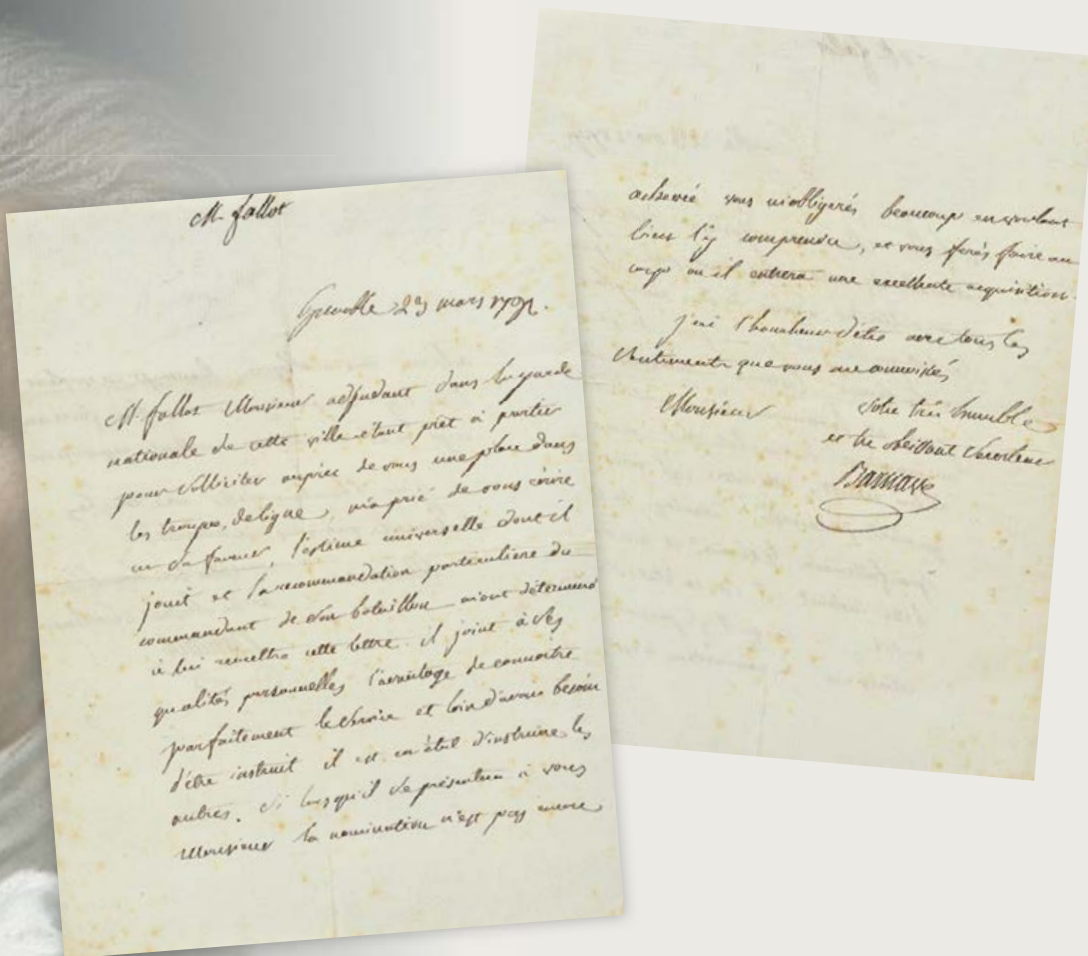 M. fallot
Grenoble 23 mars 1792.
M. fallot Monsieur adjudant dans la garde
nationale de cette ville étant prêt à partir
pour solliciter auprès de vous une place dans
les troupes de ligne, m'a prié de vous écrire
en sa faveur, l'estime universelle dont il
jouit et la recommandation particuliere du
commandant de son bataillon m'ont déterminé
à lui remettre cette lettre. il joint à ses
qualités personnelles l'avantage de connoitre
parfaitement le service et loin d'avoir besoin
d'être instruit il est en état d'instruire les
autres. Si lorsqu'il se présentera à vous
Monsieur la nomination n'est pas encore
achevée vous m'obligerés beaucoup en voulant
bien l'y comprendre, et vous ferés faire au
corps ou il entrera une excellente acquisition.
j'ai l'honneur d'etre avec tous les
sentiments que vous me connoissés,
Monsieur
votre très humble
et tres obeissant serviteur
Barnave